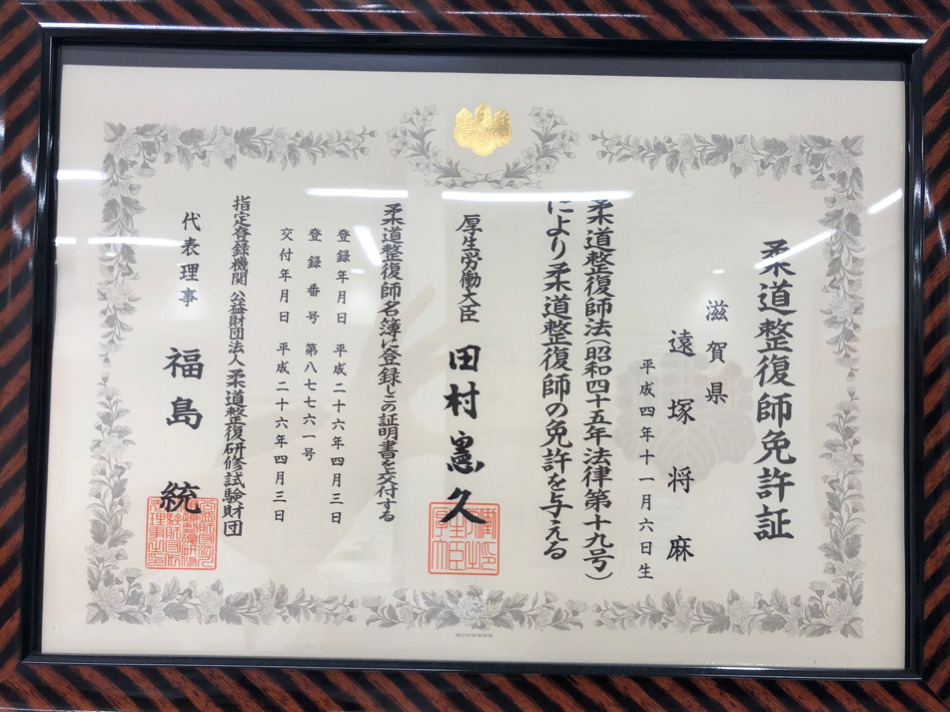 柔道整復師免許証
滋賀県
遠塚将麻
平成四年十一月六日生
柔道整復師法(昭和四十五年法律第十九号)
により柔道整復師の免許を与える
厚生労働大臣 田村憲久
柔道整復師名簿に登録しこの証明書を交付する
登録年月日 平成二十六年四月三日
登録番号 第八七七六一号
交付年月日 平成二十六年四月三日
指定登録機関 公益財団法人柔道整復研修試験財団
代表理事 福島統